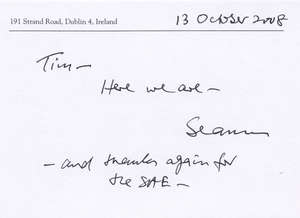 191 Strand Road, Dublin 4, Ireland
13 October 2008
Tim—
Here we are—
Seamus
—and thanks again for
the SAE—